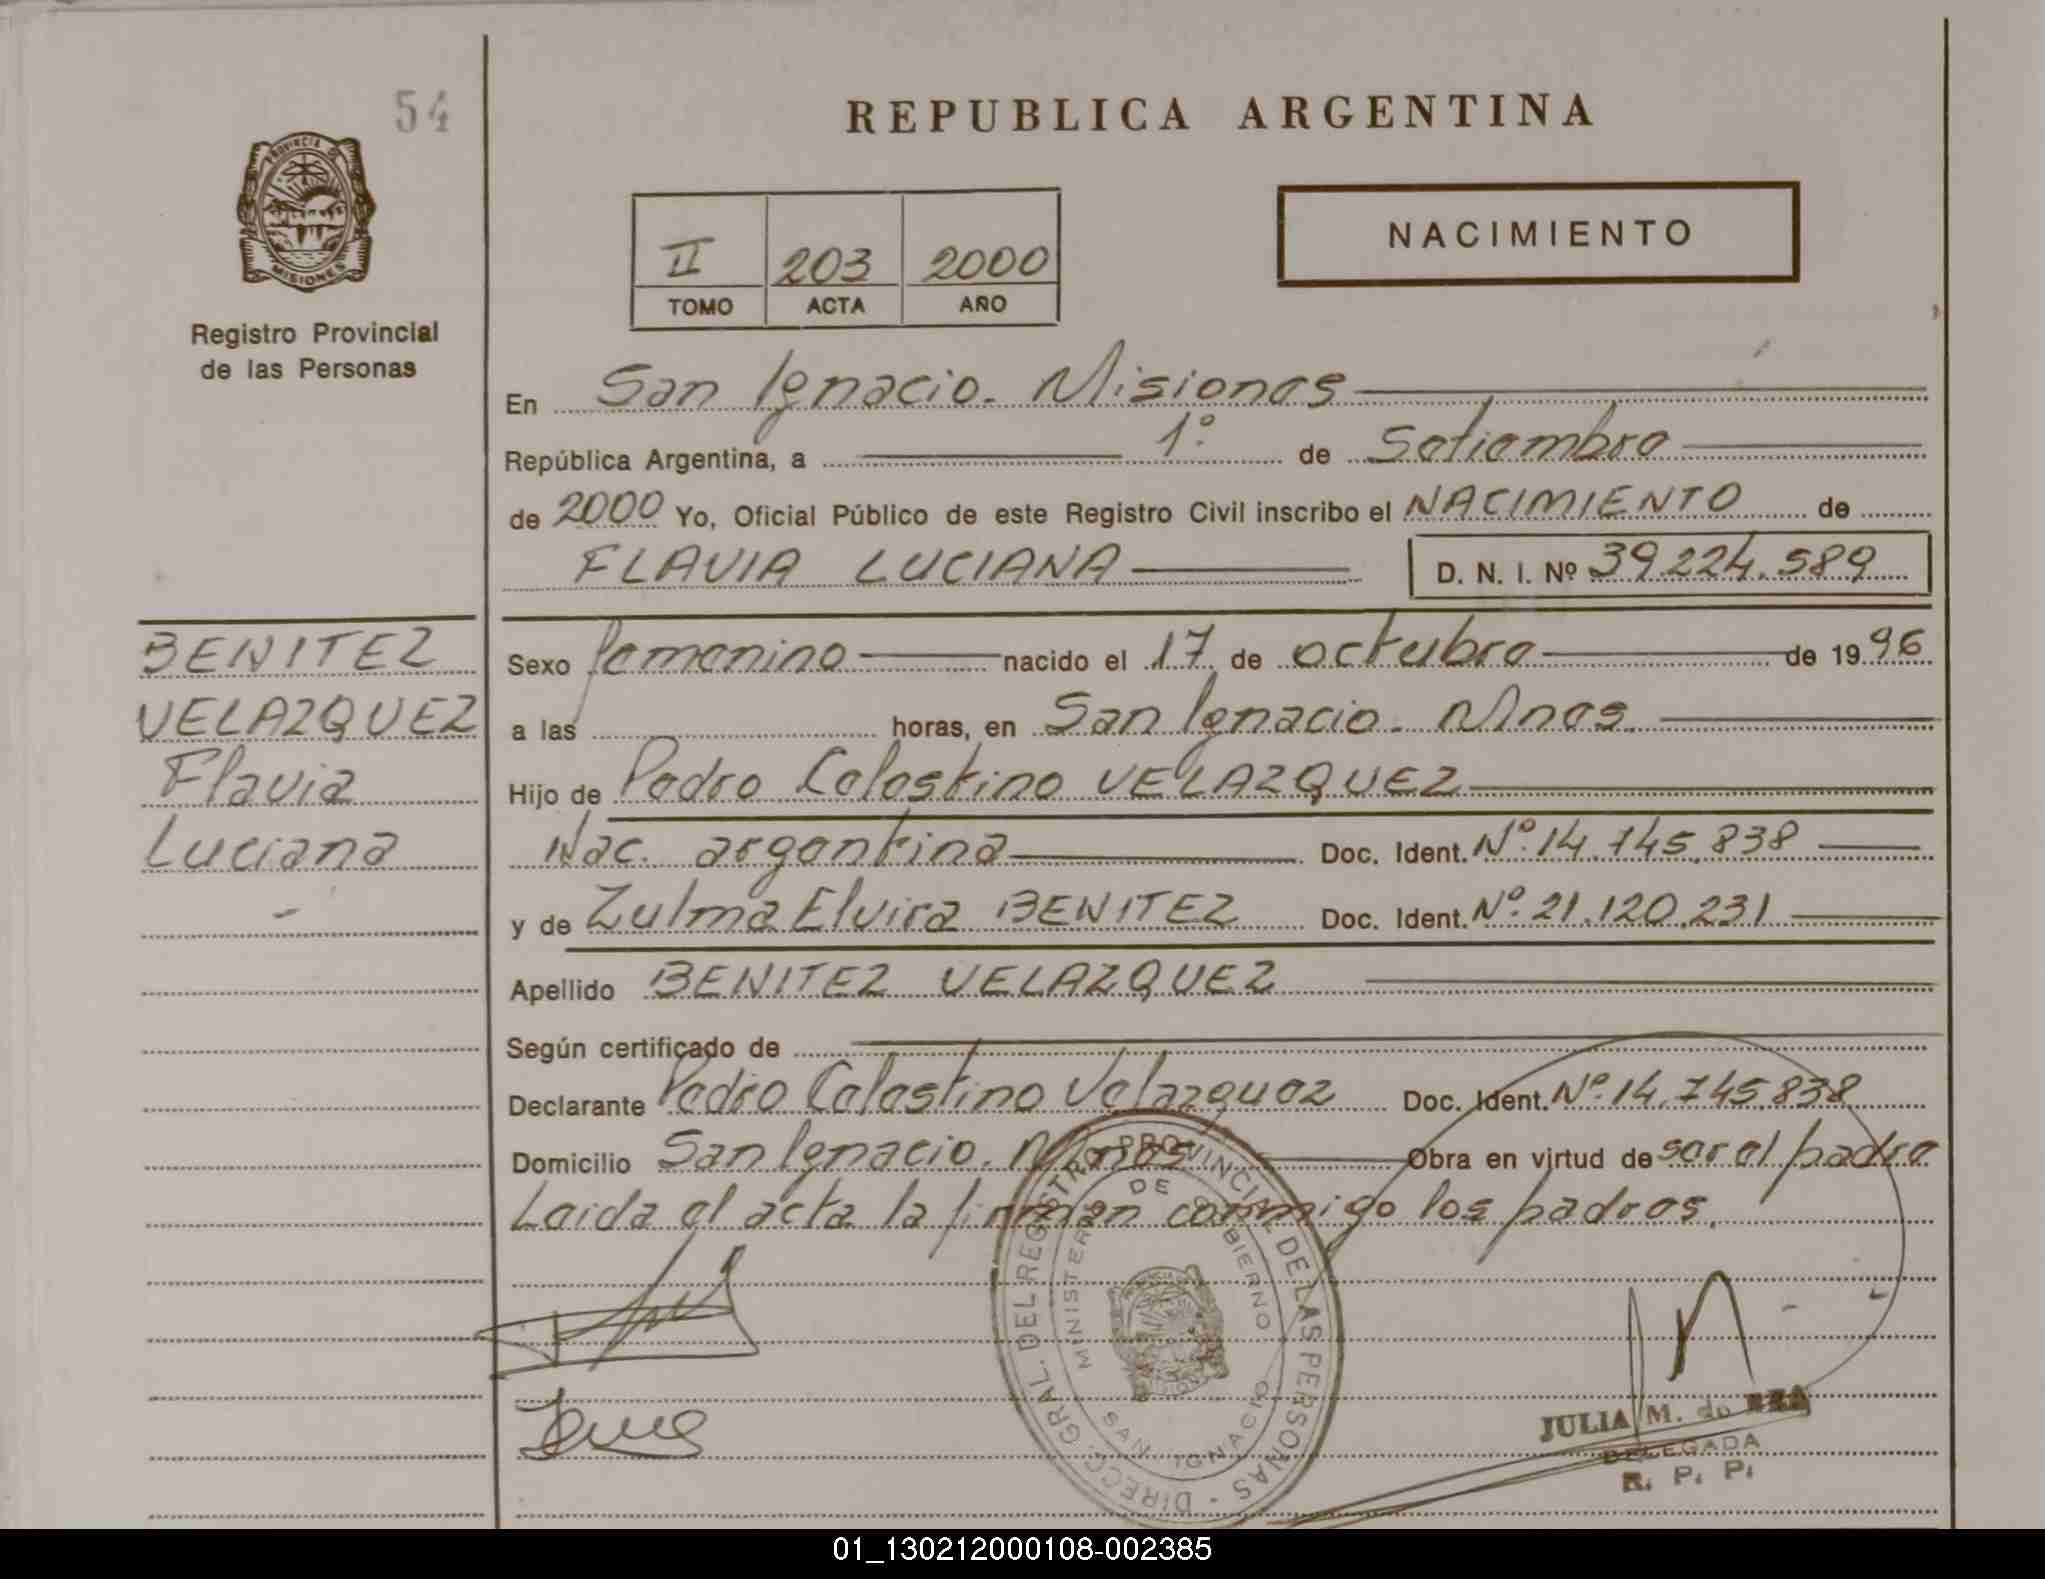 54
REPUBLICA ARGENTINA
PROVINCIA DE
MISIONES
Registro Provincial
de las Personas
NACIMIENTO
II 203 2000
TOMO ACTA AÑO
En San Ignacio. Misiones
República Argentina, a 1º de Setiembre
de 2000 Yo, Oficial Público de este Registro Civil inscribo el NACIMIENTO de
FLAVIA LUCIANA D. N. I. Nº 39.224.589
BENITEZ
VELAZQUEZ
Flavia
Luciana
Sexo femenino nacido el 17 de octubre de 1996
a las horas, en San Ignacio. Mnes.
Hijo de Pedro Celestino VELAZQUEZ
Nac. argentina Doc. Ident. Nº.14.745.838
y de Zulma Elvira BENITEZ Doc. Ident. Nº.21.120.231
Apellido BENITEZ VELAZQUEZ
Según certificado de
Declarante Pedro Celestino Velazquez Doc. Ident. Nº.14.745.838
Domicilio San Ignacio. Mnes Obra en virtud de ser el padre
Leida el acta la firman conmigo los padres.
DIRECC. GRAL. DEL REGISTRO PROVINCIAL DE LAS PERSONAS
MINISTERIO DE GOBIERNO
SAN IGNACIO
JULIA M. de
DELEGADA
R. P. P.
01_130212000108-002385